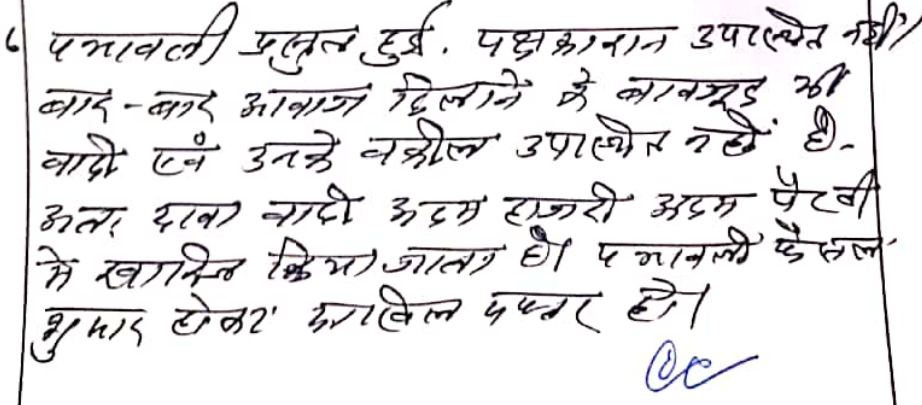 पत्रावली प्रस्तुत हुई. पक्षकारान उपस्थित नहीं।
बार-बार आवाज दिलाने के बावजूद भी
वादी एवं उनके वकील उपस्थित नहीं है.
अतः दावा वादी अदम हाजरी अदम पैरवी
में खारिज किया जाता है। पत्रावली फैसल
शुमार होकर दाखिल दफ्तर हो।